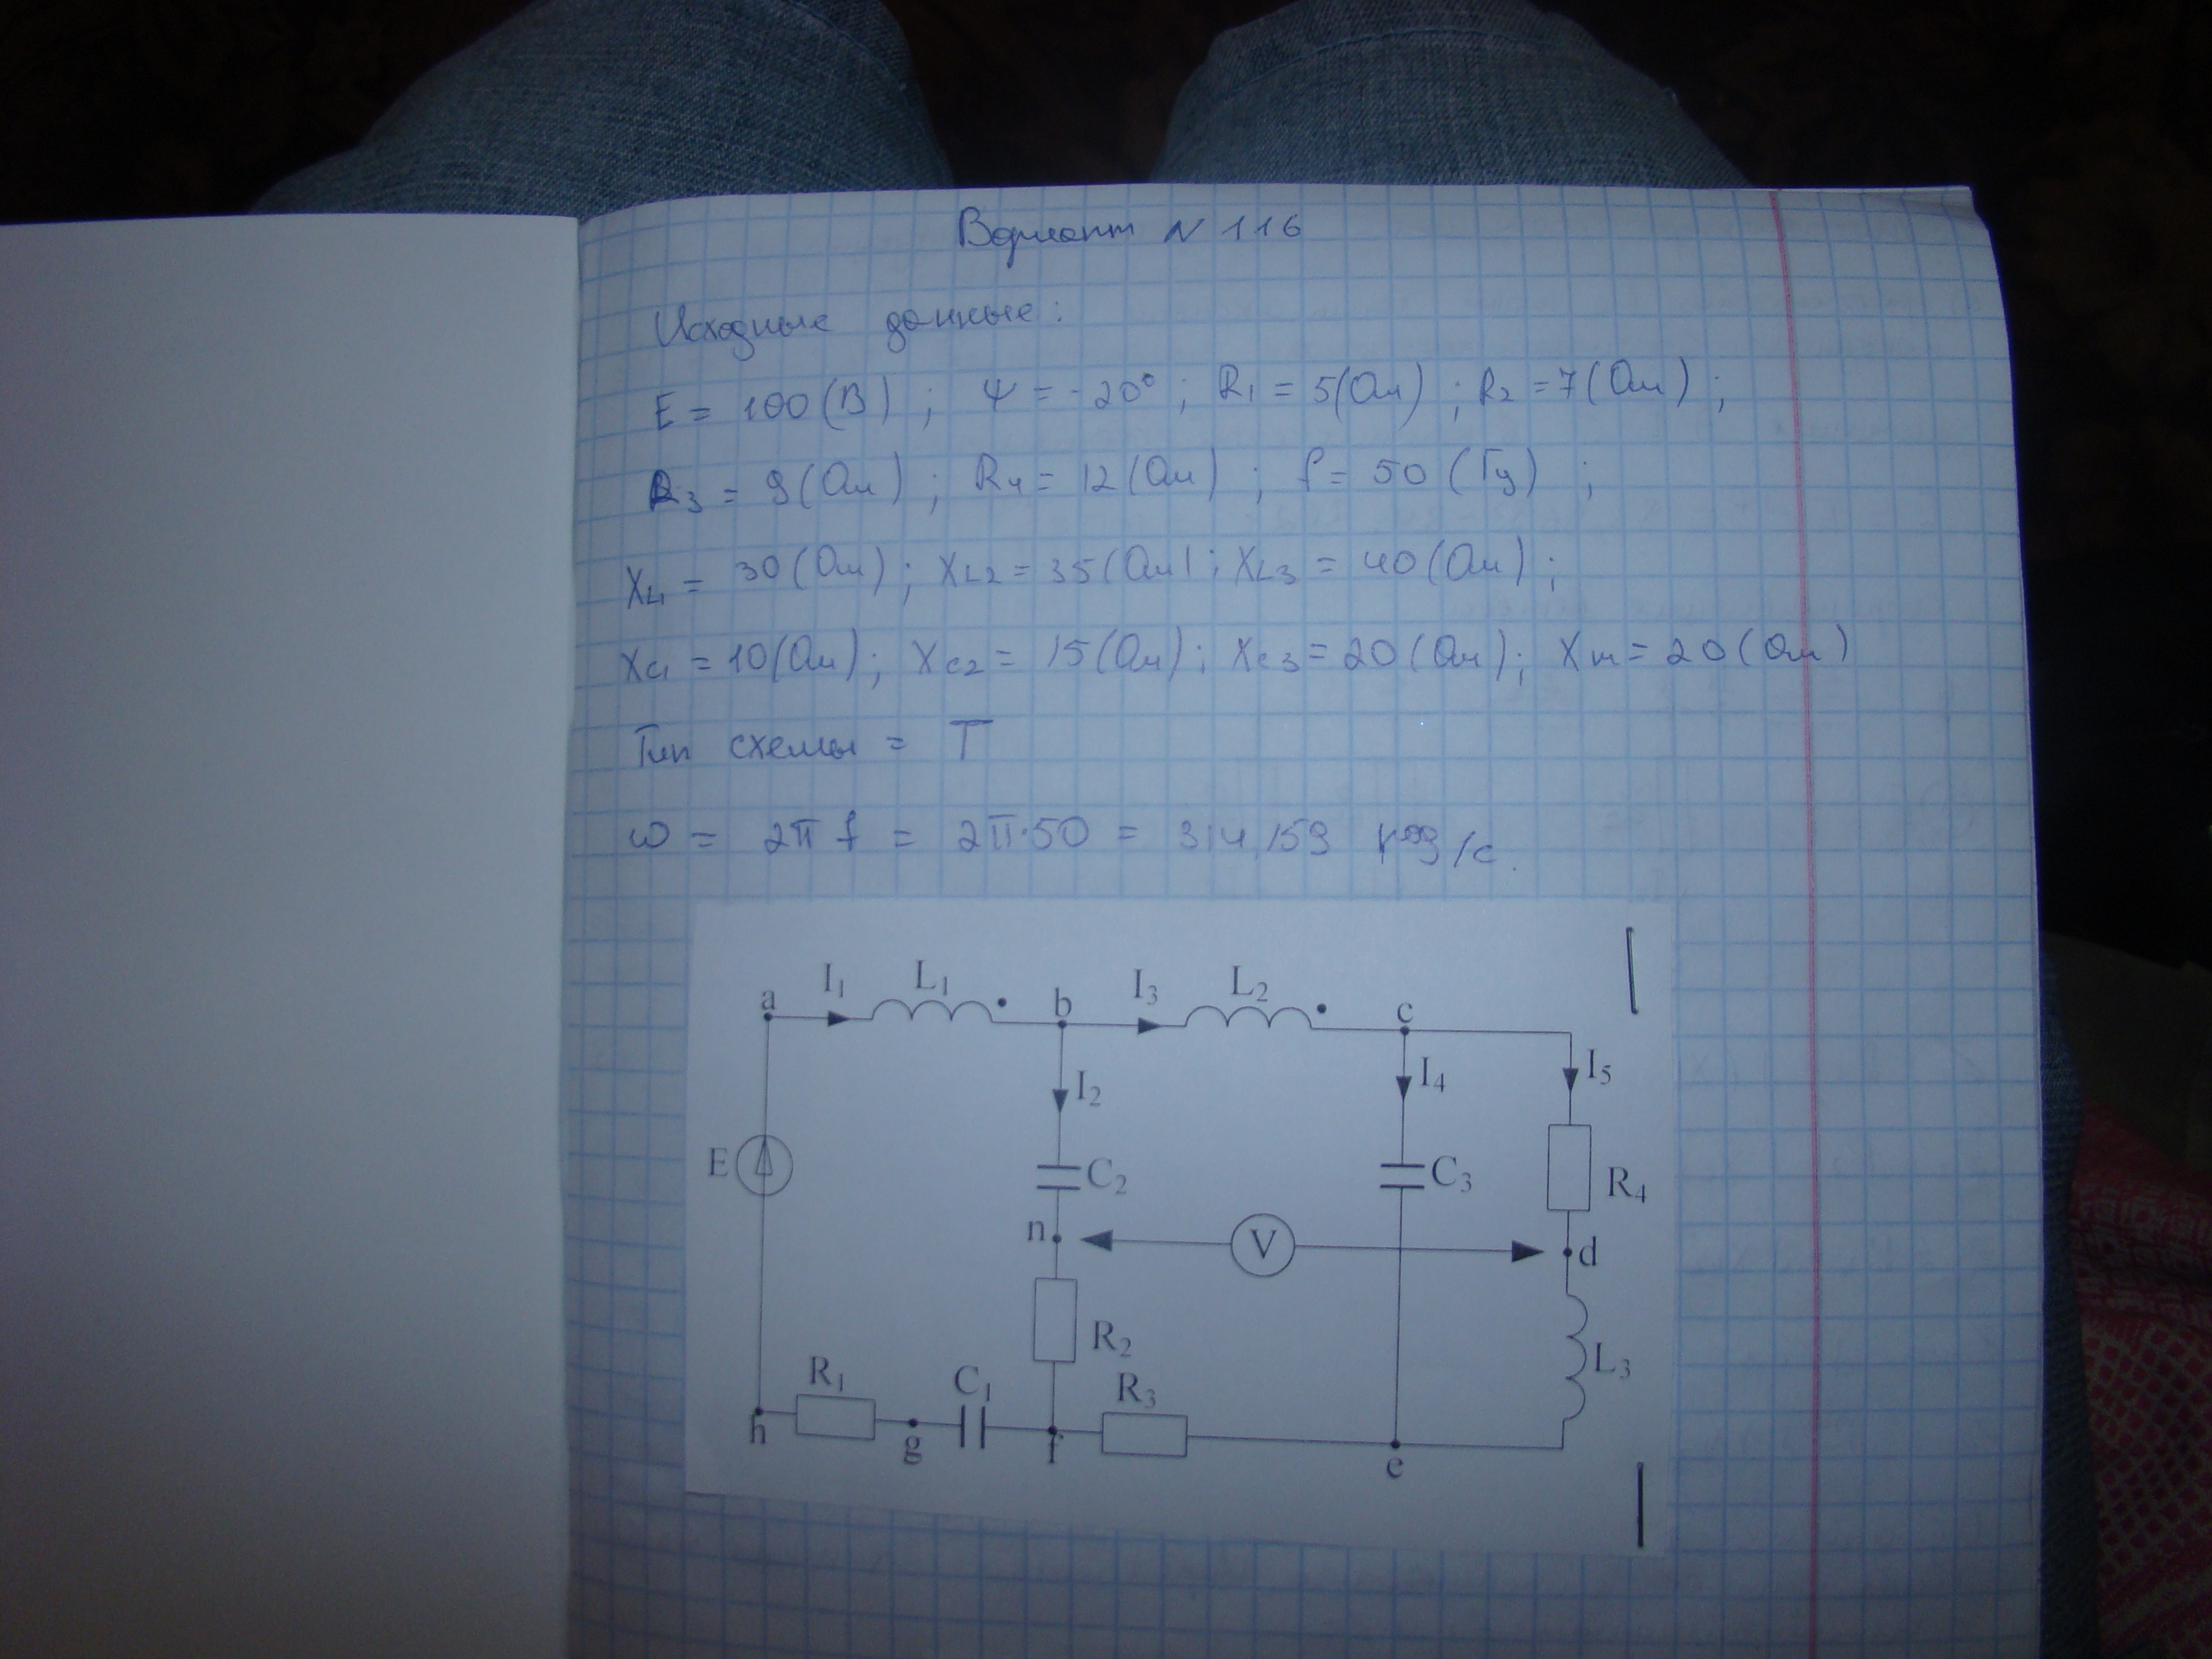 Вариант N 116
Исходные данные:
E = 100 (В) ; Ψ = -20° ; R1 = 5 (Ом) ; R2 = 7 (Ом) ;
R3 = 9 (Ом) ; R4 = 12 (Ом) ; f = 50 (Гц) ;
XL1 = 30 (Ом) ; XL2 = 35 (Ом) ; XL3 = 40 (Ом) ;
XC1 = 10 (Ом) ; XC2 = 15 (Ом) ; XC3 = 20 (Ом) ; Xm = 20 (Ом)
Тип схемы = T
ω = 2π f = 2π·50 = 314,159 рад/с.
a I1 L1 b I3 L2 c
I2 I4 I5
E C2 C3 R4
n V d
R2 L3
R1 C1 R3
h g f e